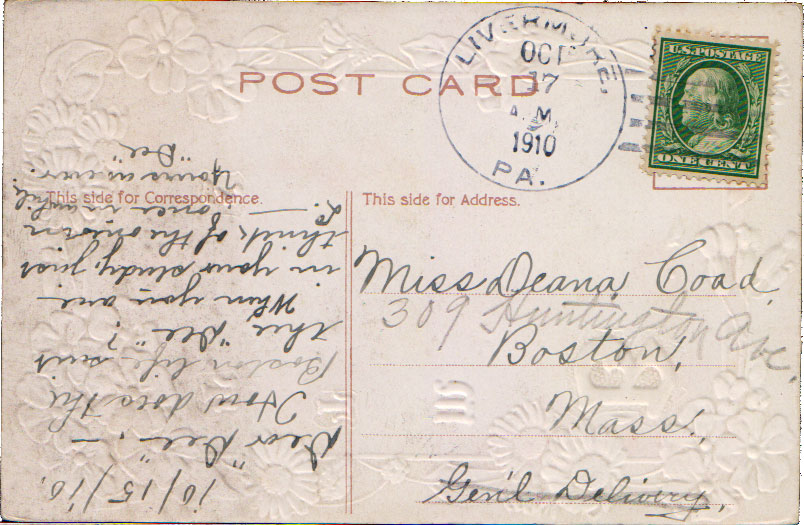 POST CARD
LIVERMORE,
OCT
17
A.M.
1910
PA.
U.S. POSTAGE
ONE CENT
This side for Correspondence.
This side for Address.
Miss Deana Coad,
309 Huntington Ave.
Boston,
Mass.
Gen'l Delivery,
10/15/10.
Dear "Dee", —
How does the
Boston life suit
thee, "Dee"?
When you are
in your study, just
think of the ones in
L. — once in awhile.
Yours as ever,
"Dee"